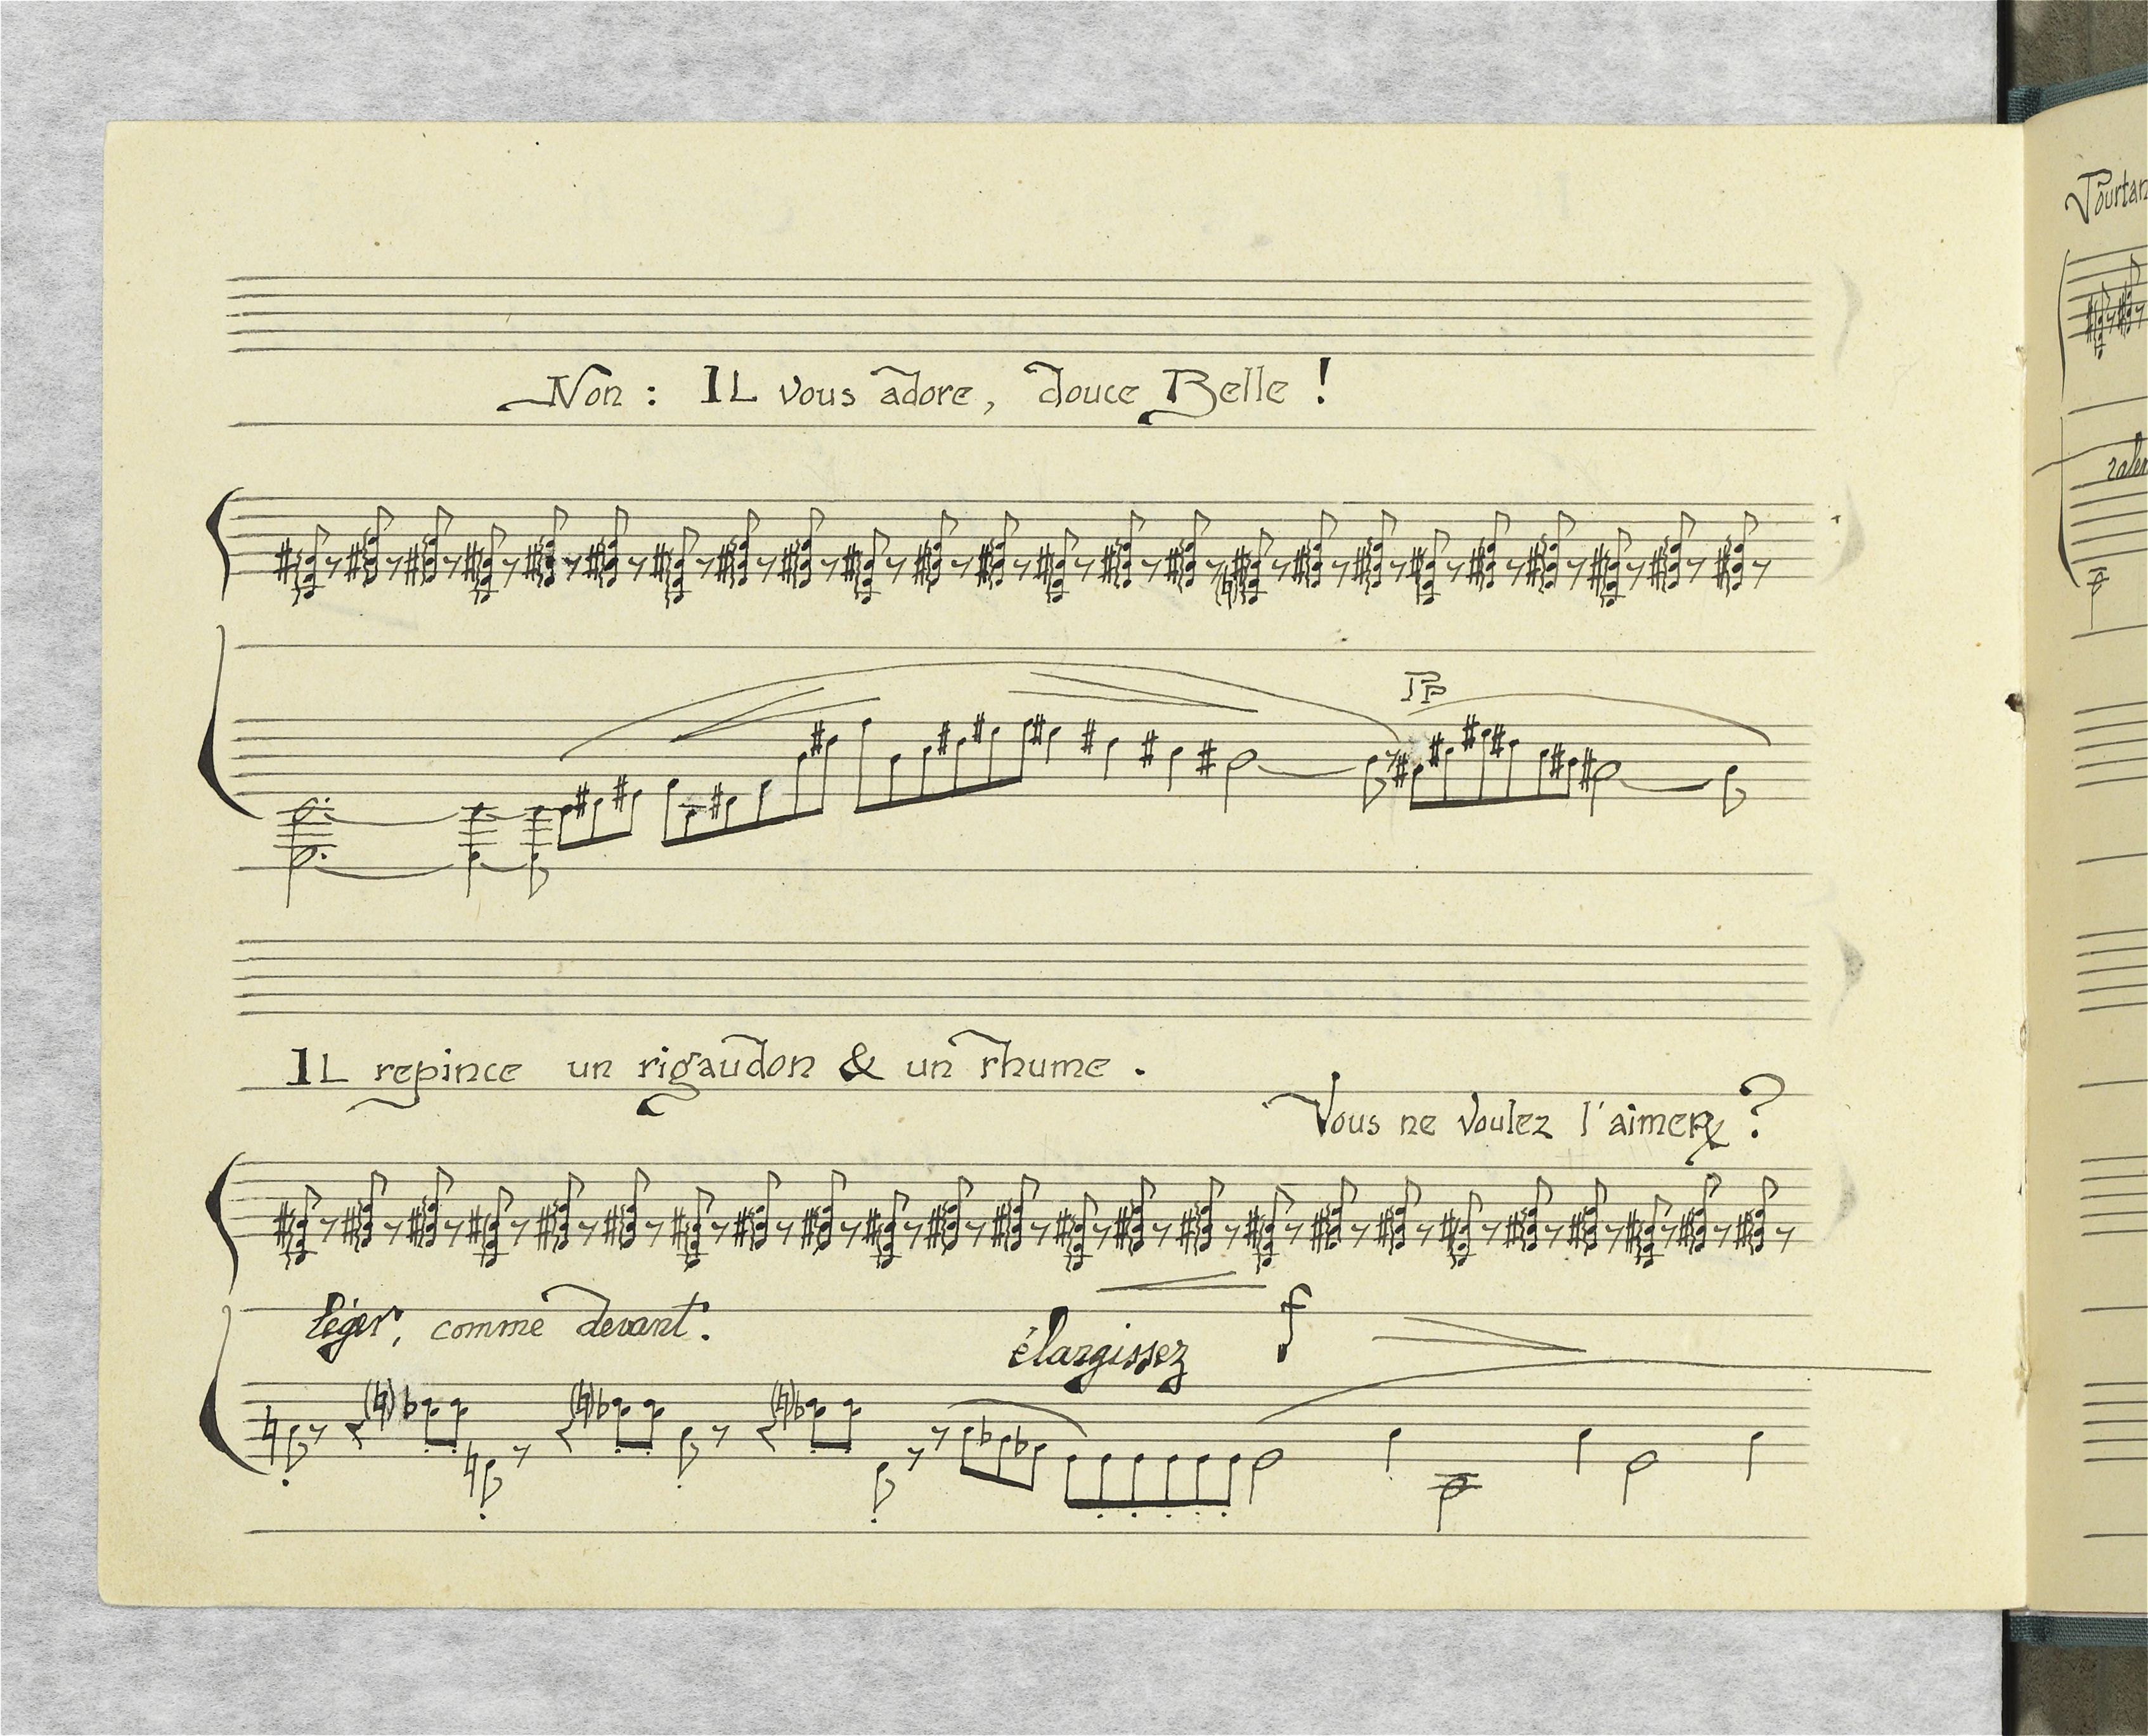 Non : IL vous adore, douce Belle !
Pp
IL repince un rigaudon & un rhume .
Vous ne voulez l'aimer ?
léger, comme devant.
élargissez
f